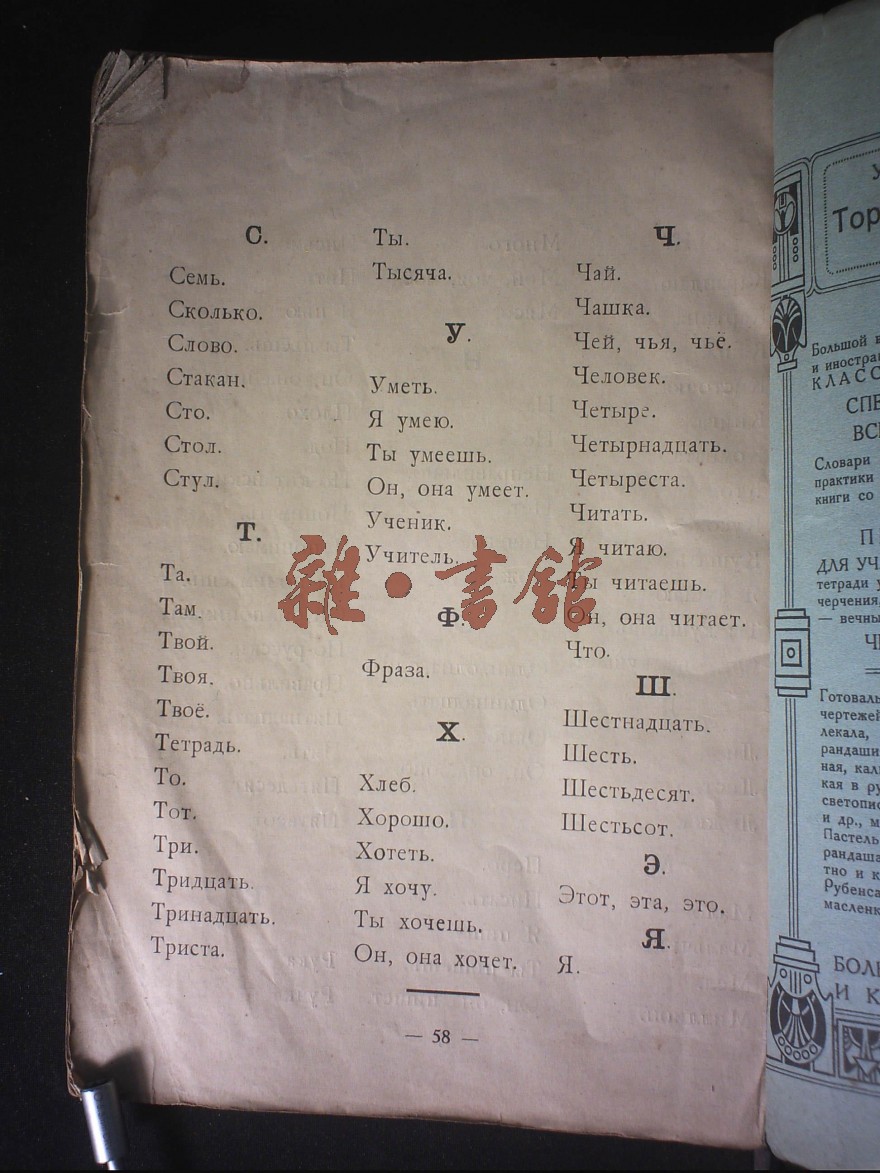 С.
Семь.
Сколько.
Слово.
Стакан.
Сто.
Стол.
Стул.
Т.
Та.
Там.
Твой.
Твоя.
Твоё.
Тетрадь.
То.
Тот.
Три.
Тридцать.
Тринадцать.
Триста.
Ты.
Тысяча.
У.
Уметь.
Я умею.
Ты умеешь.
Он, она умеет.
Ученик.
Учитель.
Ф.
Фраза.
Х.
Хлеб.
Хорошо.
Хотеть.
Я хочу.
Ты хочешь.
Он, она хочет.
Ч.
Чай.
Чашка.
Чей, чья, чьё.
Человек.
Четыре.
Четырнадцать.
Четыреста.
Читать.
Я читаю.
Ты читаешь.
Он, она читает.
Что.
Ш.
Шестнадцать.
Шесть.
Шестьдесят.
Шестьсот.
Э.
Этот, эта, это.
Я.
Я.
— 58 —
雜·書館
Большой
КЛАСС
Словари
практики
книги со
ДЛЯ
тетради
черчения,
— вечны
лекала,
светопис
и др.,
Пастель
тно и
Рубенса
масленк
И К